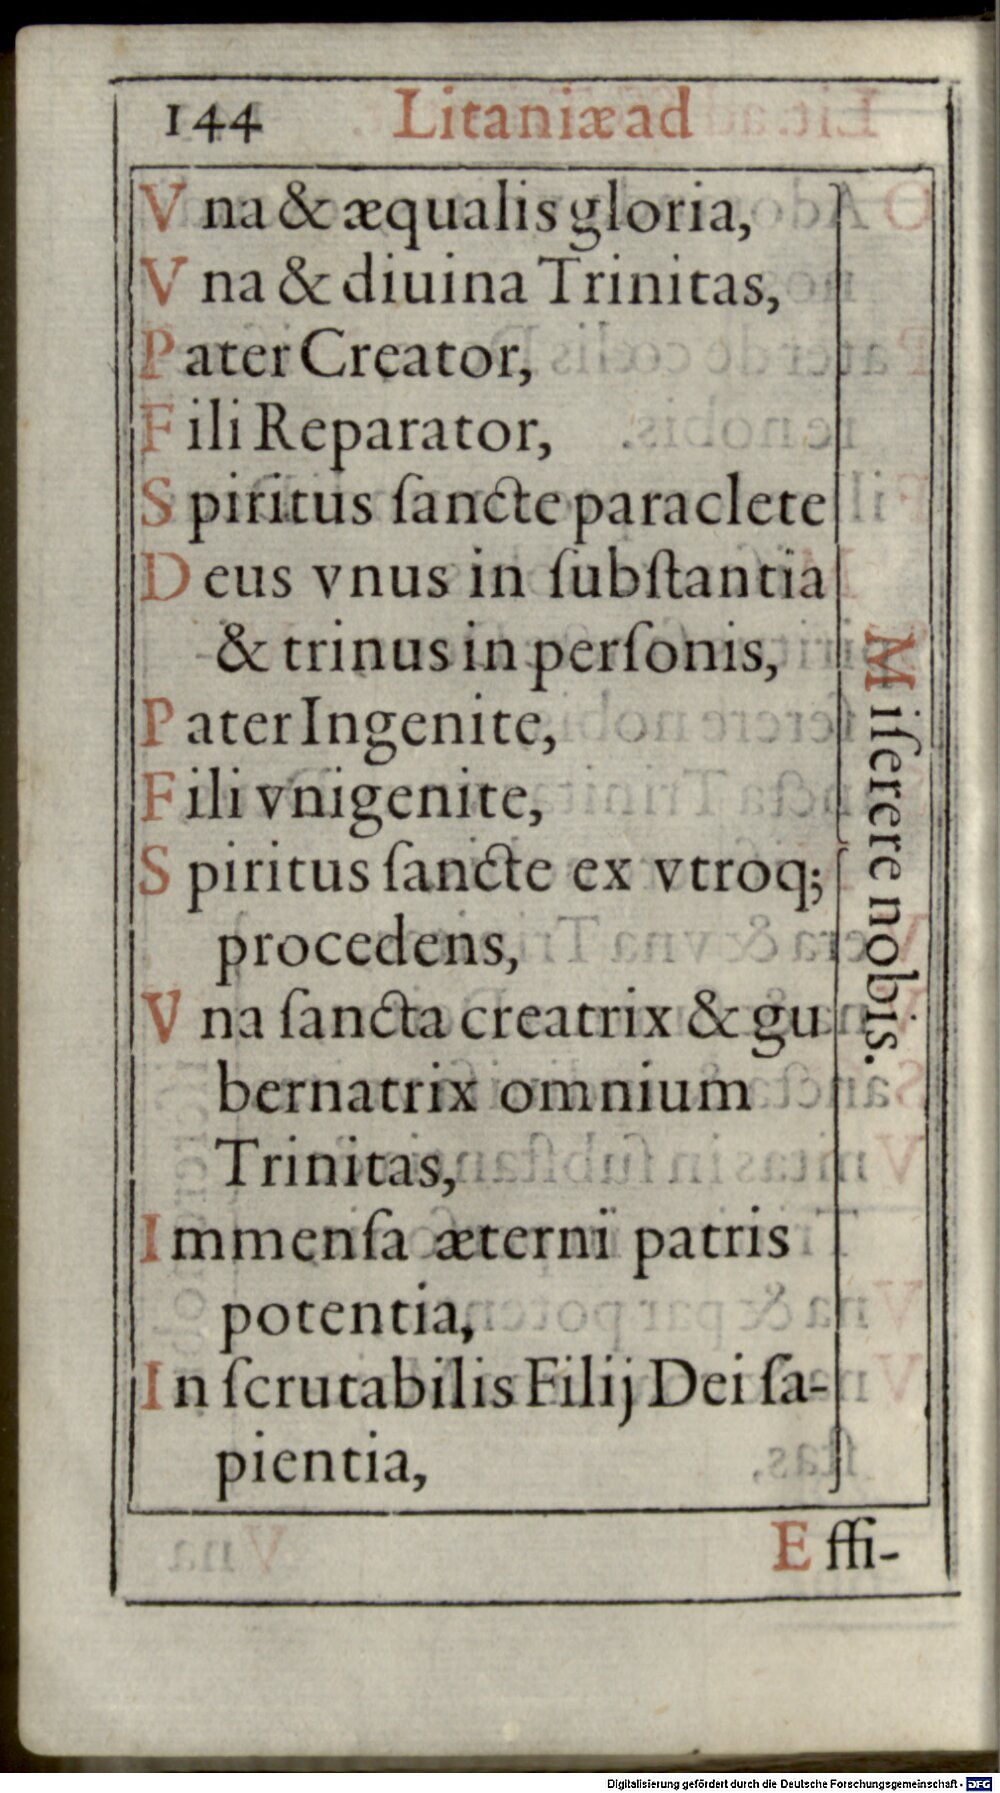 144 Litaniæ ad
Vna & æqualis gloria,
Vna & diuina Trinitas,
Pater Creator,
Fili Reparator,
Spiritus ſancte paraclete
Deus vnus in ſubſtantia
& trinus in perſonis,
Pater Ingenite,
Fili vnigenite,
Spiritus ſancte ex vtroq;
procedens,
Vna ſancta creatrix & gu
bernatrix omnium
Trinitas,
Immenſa æterni patris
potentia,
Inſcrutabilis Filij Dei ſa-
pientia,
Miſerere nobis.
Effi-
Digitalisierung gefördert durch die Deutsche Forschungsgemeinschaft - DFG